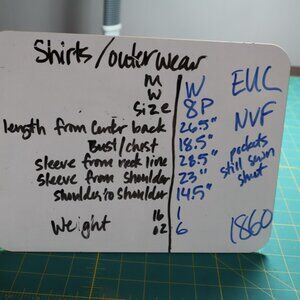 Shirts/outerwear
M
W W EUC
Size 8P
length from center back 26.5" NVF
Bust/chest 18.5"
sleeve from neck line 28.5" pockets
sleeve from shoulder 23" still sewn
shoulder to shoulder 14.5" shut
lb 1
Weight oz 6 1860